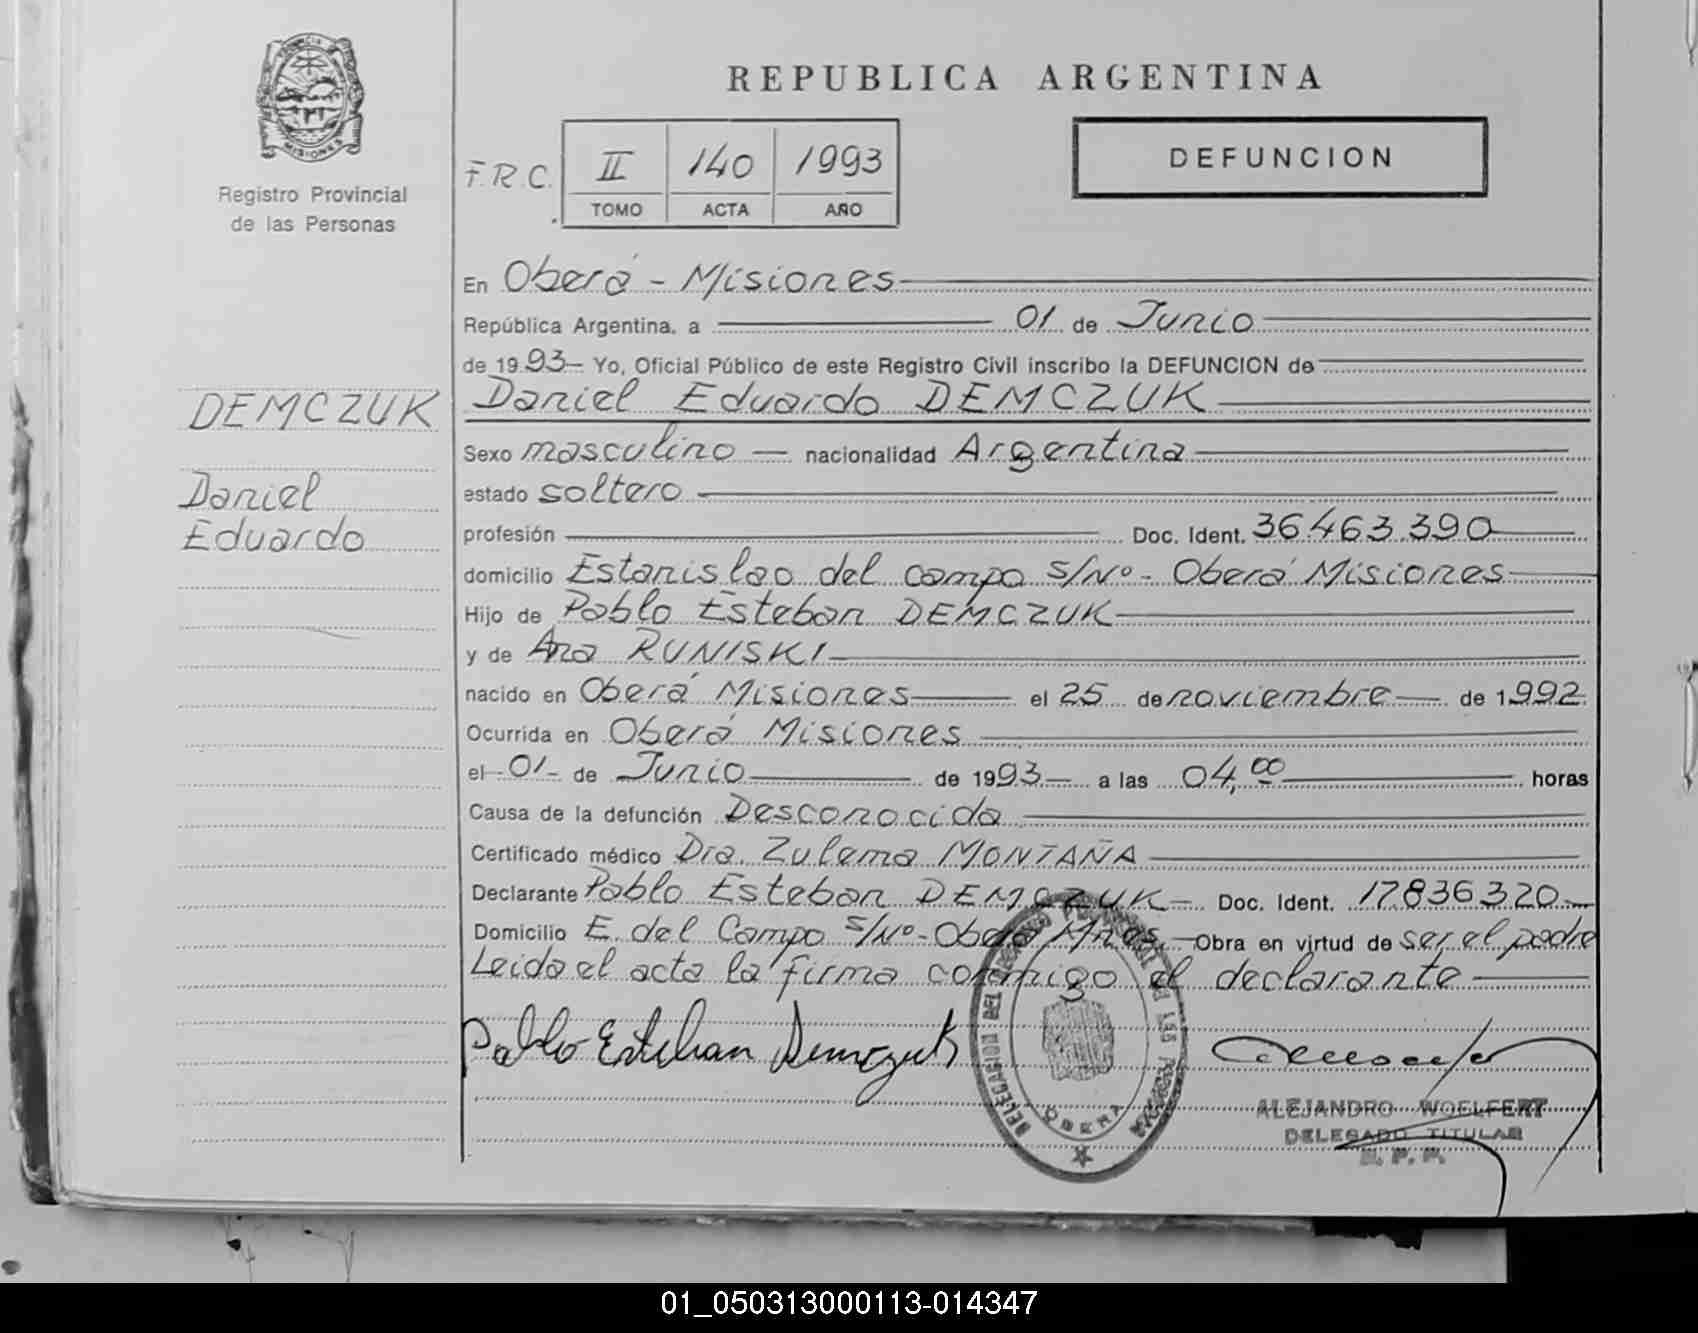 PROVINCIA DE
MISIONES
Registro Provincial
de las Personas
REPUBLICA ARGENTINA
F.R.C. II 140 1993
TOMO ACTA AÑO
DEFUNCION
En Oberá - Misiones
República Argentina, a 01 de Junio
de 1993 Yo, Oficial Público de este Registro Civil inscribo la DEFUNCION de
DEMCZUK
Daniel Eduardo DEMCZUK
Sexo masculino nacionalidad Argentina
Daniel
estado soltero
Eduardo
profesión Doc. Ident. 36.463.390
domicilio Estanislao del campo s/Nº - Oberá Misiones
Hijo de Pablo Esteban DEMCZUK
y de Ana RUNISKI
nacido en Oberá Misiones el 25 de noviembre de 1992
Ocurrida en Oberá Misiones
el 01 de Junio de 1993 a las 04,00 horas
Causa de la defunción Desconocida
Certificado médico Dra. Zulema MONTAÑA
Declarante Pablo Esteban DEMCZUK Doc. Ident. 17.836.320
Domicilio E. del Campo s/Nº - Oberá Mnes. Obra en virtud de ser el padre
Leida el acta la firma conmigo el declarante
Pablo Esteban Demczuk
DELEGACION DEL REGISTRO PROVINCIAL DE LAS PERSONAS
OBERA
ALEJANDRO WOELFERT
DELEGADO TITULAR
R. P. P.
01_050313000113-014347